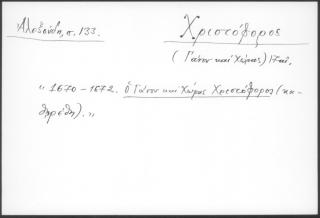 Ἀλεξούδη, σ. 133.
Χριστόφορος
(Γάνου καὶ Χώρας) 17 αἰ.
" 1670 - 1672. ὁ Γάνου καὶ Χώρας Χριστόφορος (κα-
θηρέθη). "